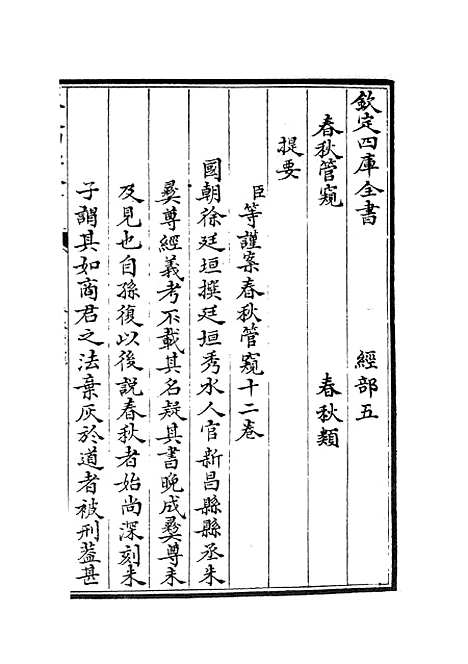 欽定四庫全書　經部五
春秋管窺　春秋類
提要
臣等謹案春秋管窺十二卷
國朝徐廷垣撰廷垣秀水人官新昌縣縣丞朱
彝尊經義考不載其名疑其書晚成彝尊未
及見也自孫復以後說春秋者始尚深刻朱
子謂其如商君之法棄灰於道者被刑葢甚